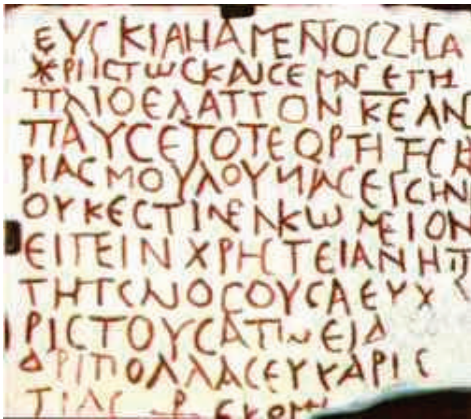 ΕΥϹΚΙΑΗΑΜΕΝΟϹΖΗϹΑ
ΧΡΗϹΤΩϹΚΑΙϹΕΜΝ ΕΤΗ
ΠΛΙΟΕΛΑΤΤΟΝ ΚΕ ΑΝ
ΠΑΥϹΕΤΟΤΕΩΡΤΗ ΤϹΚ
ΡΙΑϹΜΟΥΛΟΥΚΙΑϹΕΙϹΗΝ
ΟΥΚΕϹΤΙΝΕΝΚΩΜΕΙΟΝ
ΕΙΠΕΙΝ ΧΡΗϹΤΕΙΑΝΗΠ
ΤΗΤΕΛΙΟϹΟΥϹΑΕΥΧ
ΡΙϹΤΟΥϹΑΤΩΕΙΔ
ΔΡΙΠΟΛΛΑϹΕΥΧΑΡΙϹ
ΤΙΑϹ